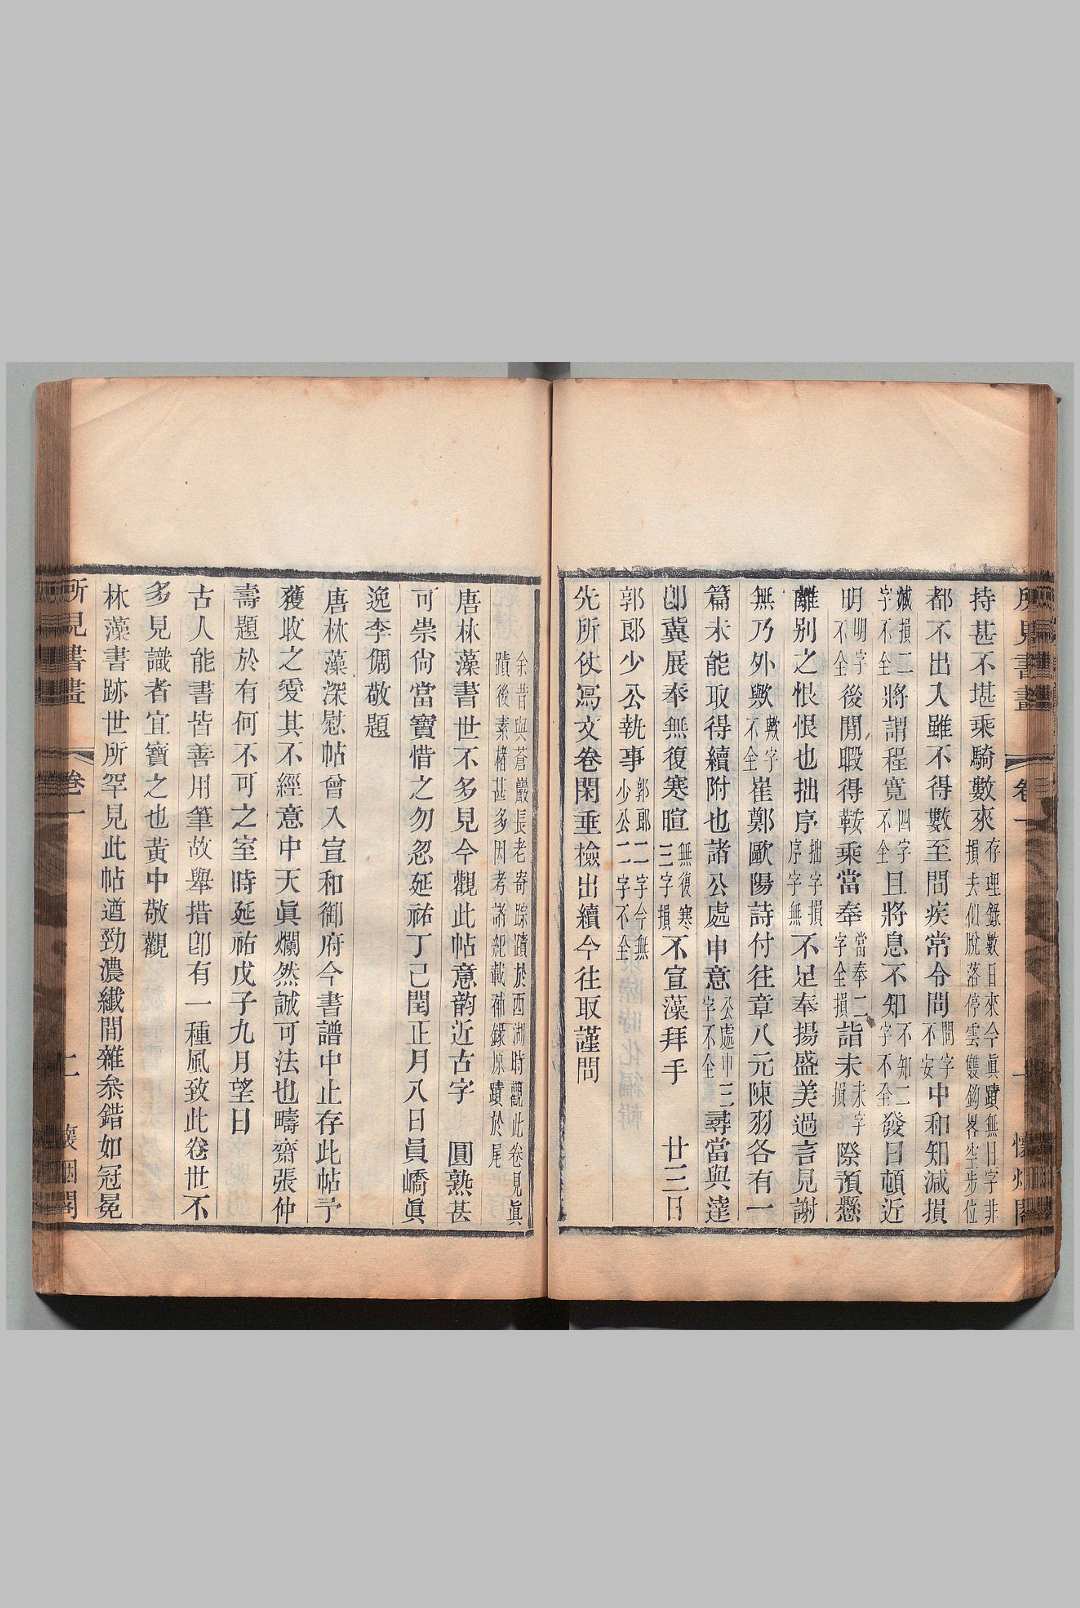 持甚不堪乘騎數來存理錄數日來今眞蹟無日字非損去似脫落停雲雙鉤畧空步位
都不出入雖不得數至問疾常令問問字不安中和知減損
減損二字不全將謂程寬四字不全且將息不知不知二字不全發日頓近
明明字不全後閒暇得鞍乘當奉當奉二字全損詣未未字損際預懸
離別之恨恨也拙序拙字損序字無不足奉揚盛美過言見謝
無乃外歟歟字不全崔鄭歐陽詩付往章八元陳羽各有一
篇未能取得續附也諸公處申意公處申字不全三尋當與達
卽冀展奉無復寒暄無復寒三字損不宣藻拜手 廿三日
郭郎少公執事郭郎少公二字今無二字不全
先所伏寫文卷閑垂檢出續令往取謹問
余昔與蒼巖長老寄踪蹟於西湖時觀此卷見眞蹟後素楮甚多因考諸紀載補錄原蹟於尾
唐林藻書世不多見今觀此帖意韵近古字 圓熟甚
可崇尙當寶惜之勿忽延祐丁己閏正月八日員嶠眞
逸李倜敬題
唐林藻深慰帖曾入宣和御府今書譜中止存此帖予
獲收之愛其不經意中天眞爛然誠可法也疇齋張仲
壽題於有何不可之室時延祐戊子九月望日
古人能書皆善用筆故舉措卽有一種風致此卷世不
多見識者宜寶之也黃中敬觀
林藻書跡世所罕見此帖遒勁濃纖間雜叅錯如冠冕
所見書畫 卷一